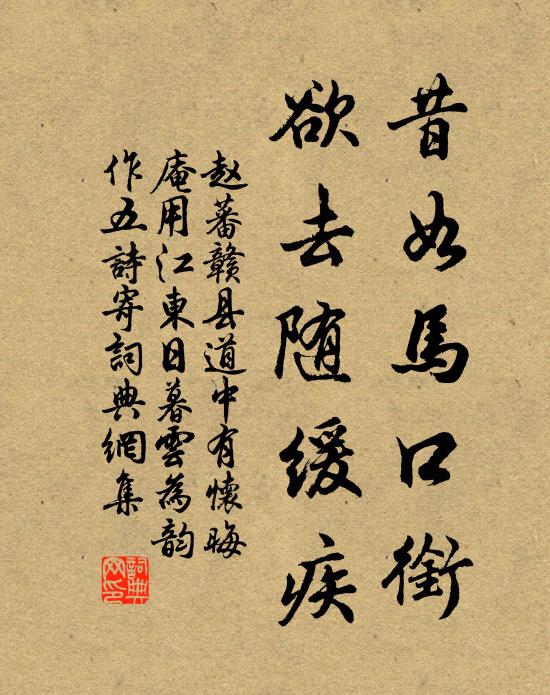 昔如馬口銜
欲去随緩疾
赵蕃贛县道中有懷晦
庵用江東日暮雲為韵
作五詩寄詞典網集
詞典
网印